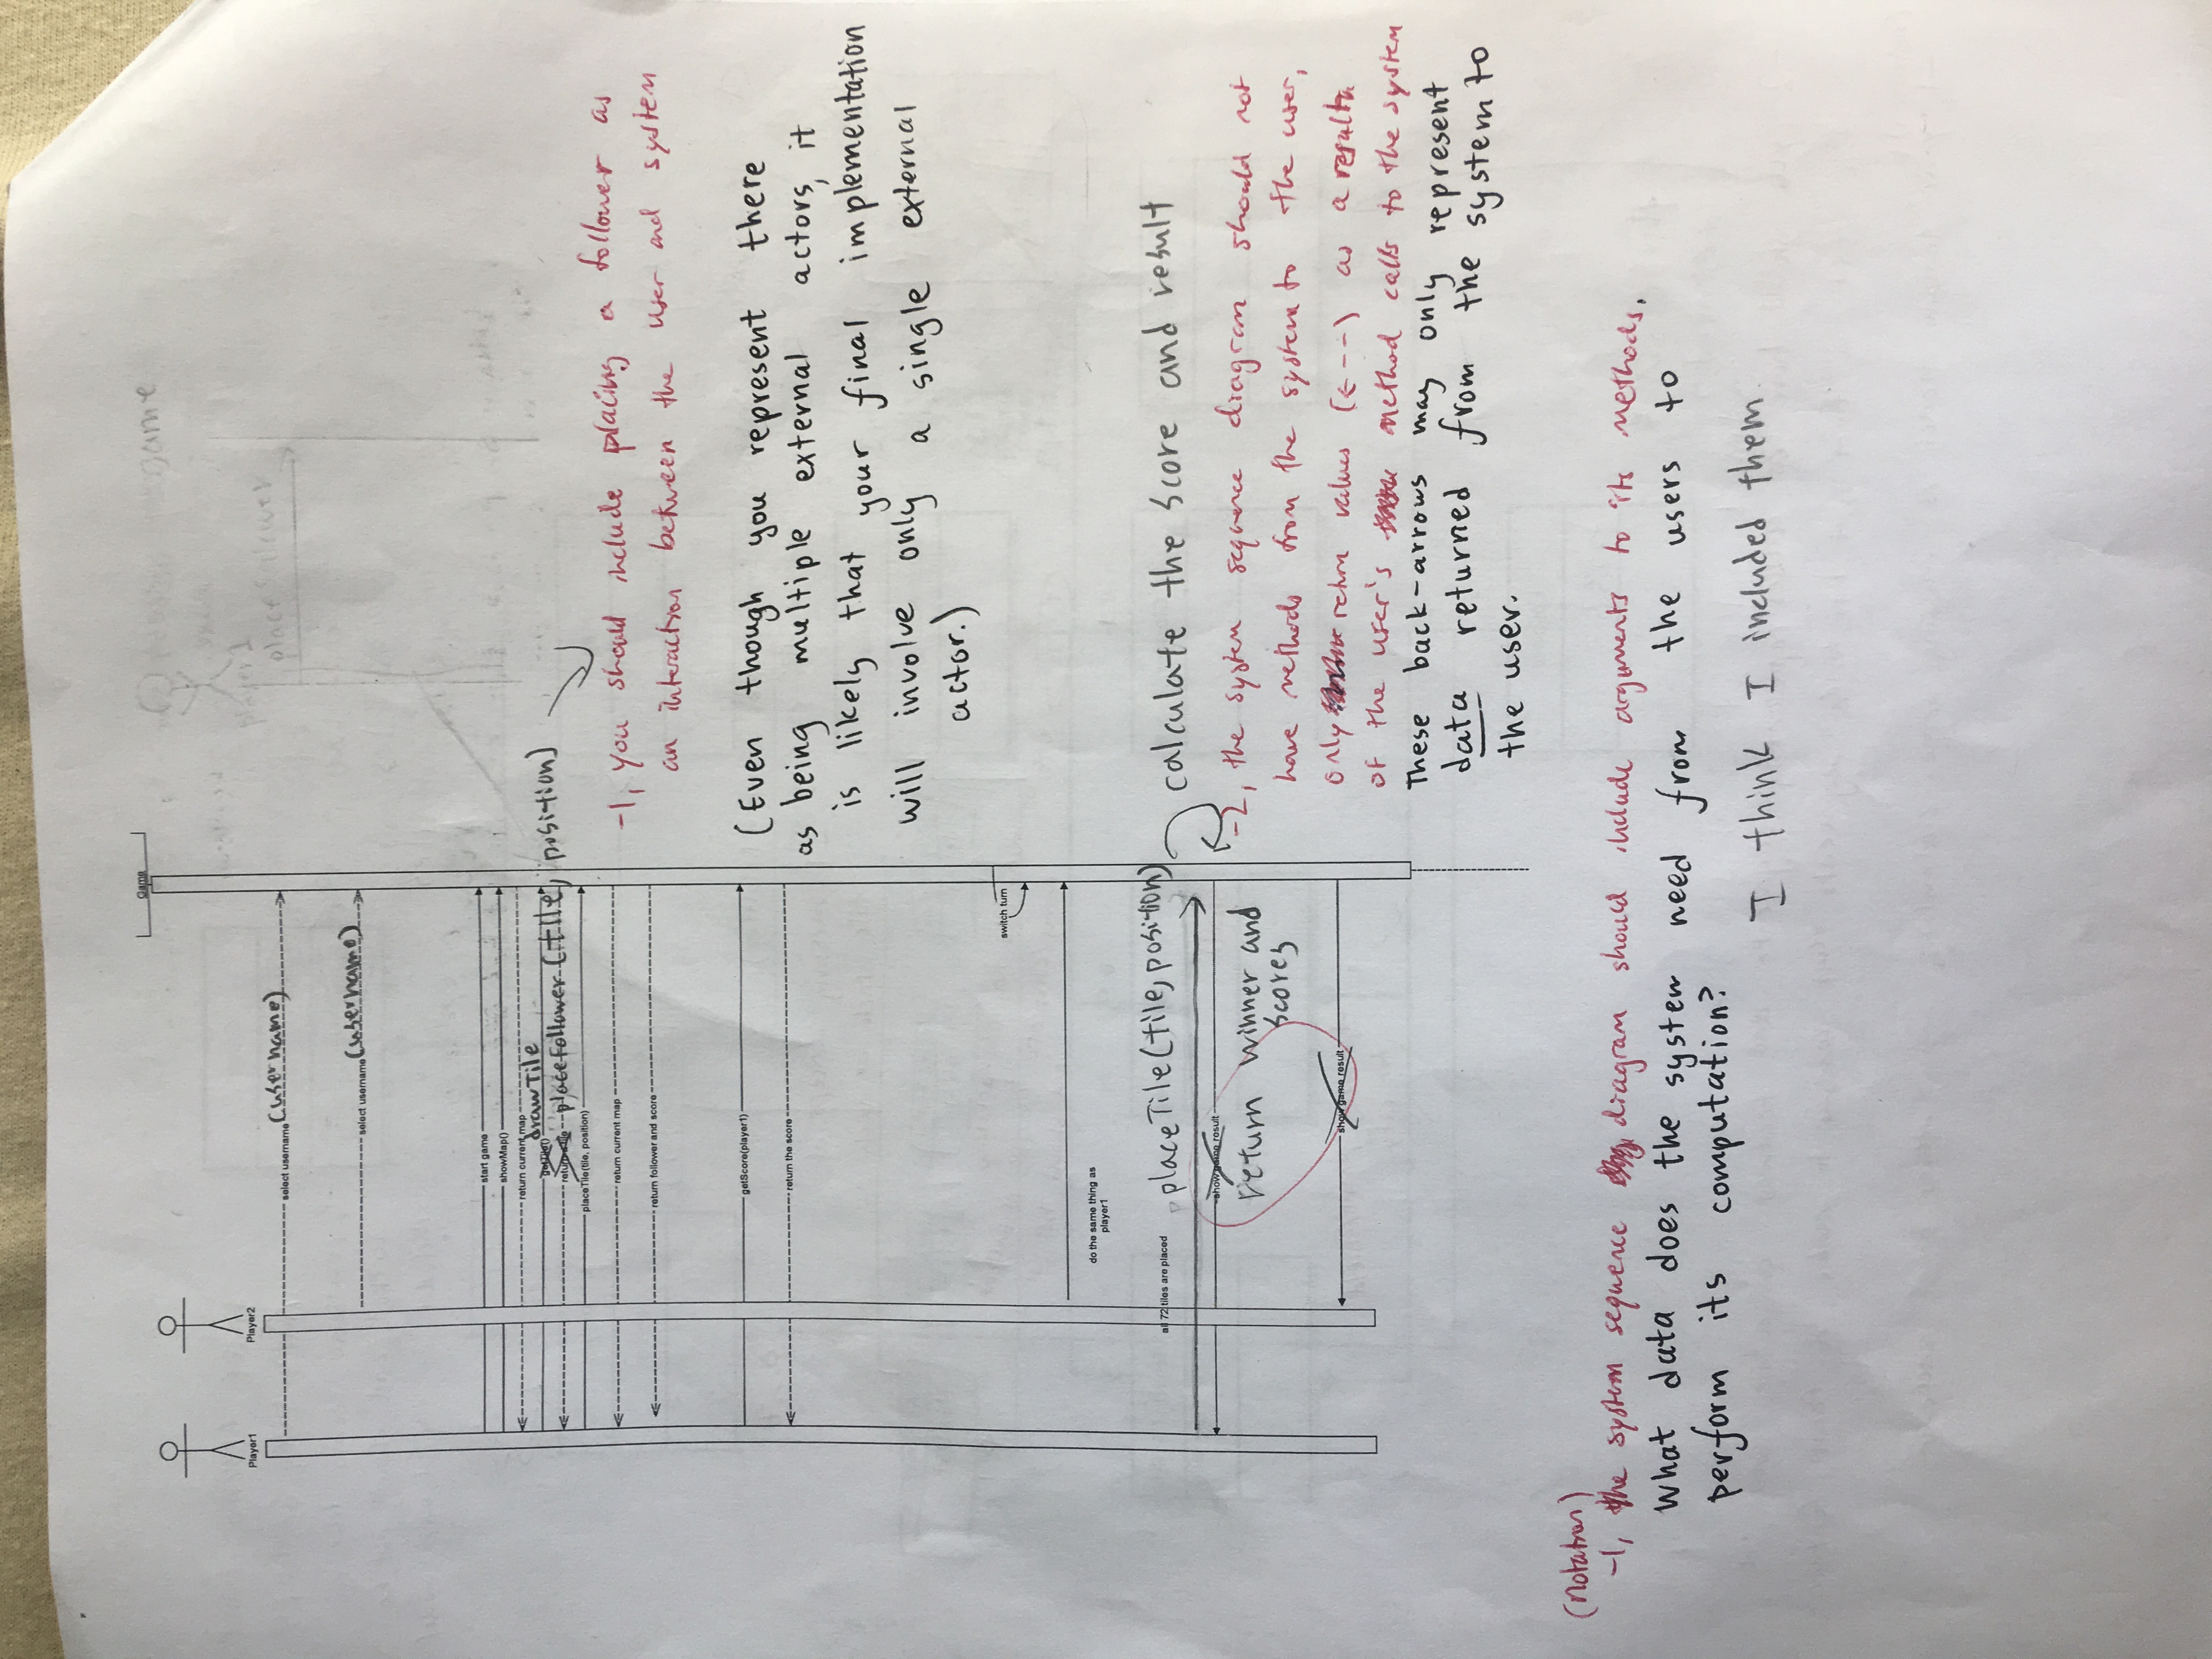 Game
Player1
Player2
select username (username)
select username (username)
start game
showMap()
return current map
drawTile
getTile()
return a tile placeFollower (tile, position)
placeTile(tile, position)
return current map
-1, you should include placing a follower as
an interaction between the user and system
return follower and score
getScore(player1)
return the score
(Even though you represent there
as being multiple external actors, it
is likely that your final implementation
will involve only a single external
actor.)
switch turn
do the same thing as
player1
all 72 tiles are placed
placeTile(tile, position)
calculate the score and result
show game result
return winner and
scores
show game result
-2, the system sequence diagram should not
have methods from the system to the user,
only return values (<---) as a result
of the user's method calls to the system
These back-arrows may only represent
data returned from the system to
the user.
(notation)
-1, the system sequence diagram should include arguments to its methods.
What data does the system need from the users to
perform its computation?
I think I included them
game
player1
placeFollower